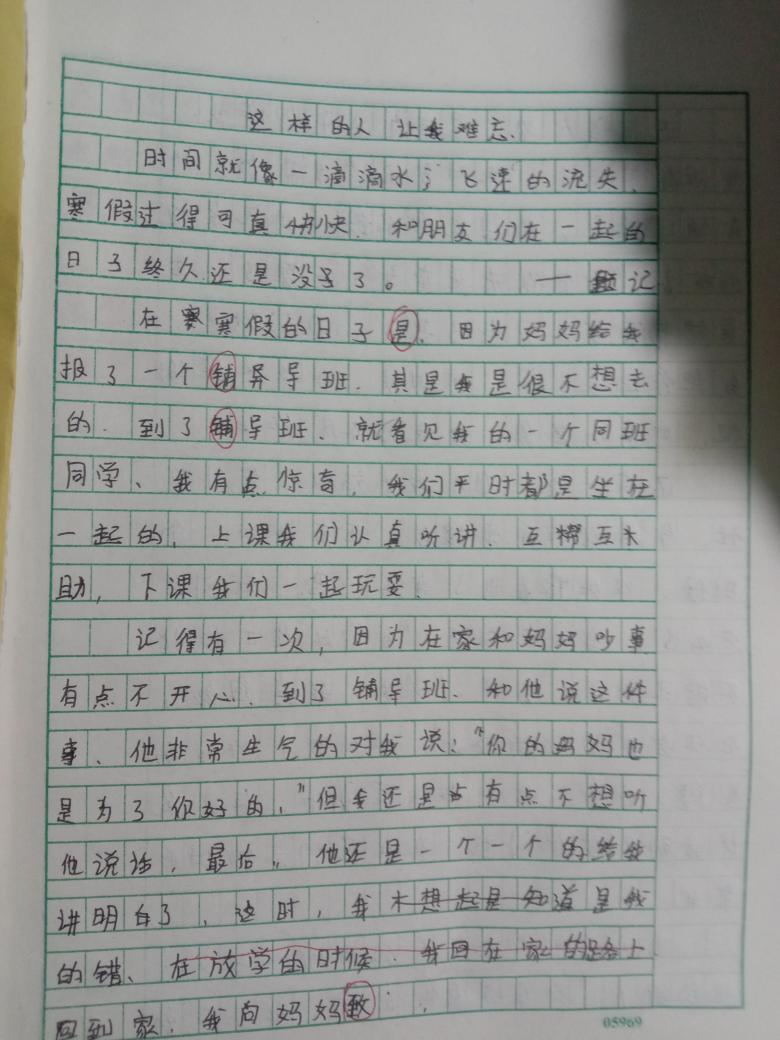 这样的人让我难忘.
时间就像一滴滴水;飞速的流失、
寒假过得可真快.和朋友们在一起的
日子终久还是没了。——题记
在寒寒假的日子是.因为妈妈给我
报了一个铺导班.其是我是很不想去
的.到了铺导班、就看见我的一个同班
同学、我有点惊奇,我们平时都是坐在
一起的,上课我们认真听讲.互帮互
助,下课我们一起玩耍.
记得有一次,因为在家和妈妈吵事
有点不开心.到了铺导班、和他说这件
事、他非常生气的对我说:“你的妈妈也
是为了你好的,”但我还是有点不想听
他说话,最后,他还是一个一个的给我
讲明白了,这时,我想起是知道是我
的错、在放学的时候.我回在家的路上
回到家.我向妈妈致
05969